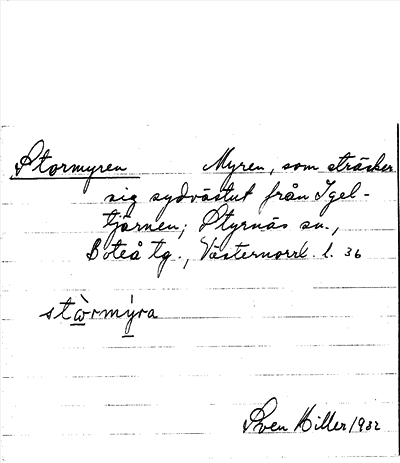 Stormyren Myren, som sträcker
sig sydvästut från Igel-
tjärnen; Styrnäs sn.,
Boteå tg., Västernorrl. l. 36
stòrmýra
Sven Hiller 1932